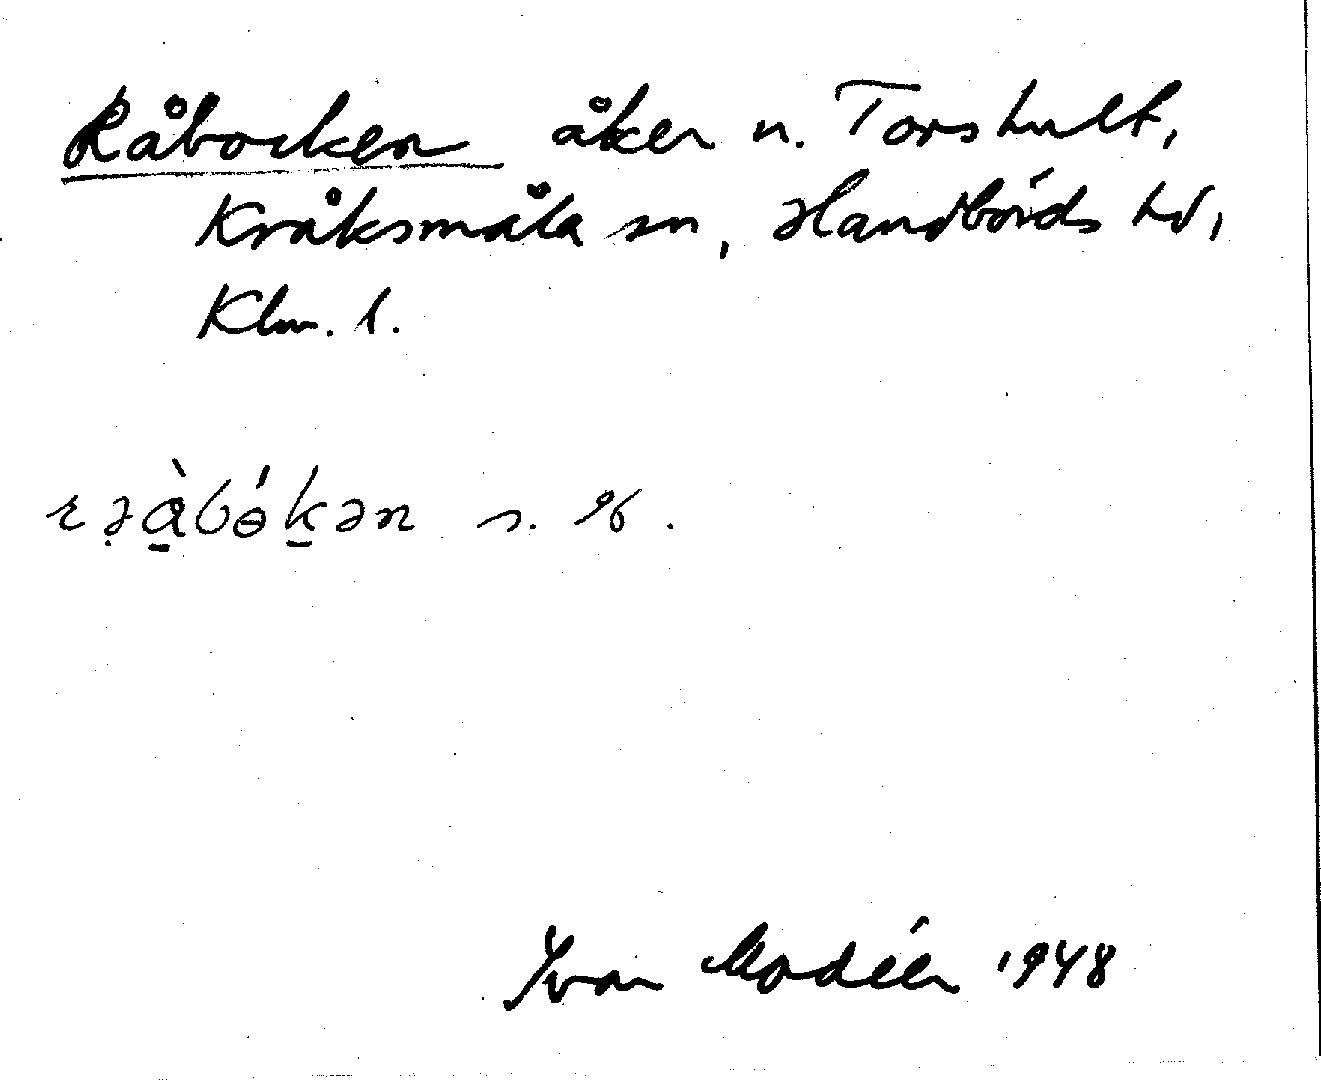 Råbocken åker n. Torshult,
Kråksmåla sn, Handbörds hd,
Klm. l.
rə̣à̱bɵ́ḵən s. %.
Ivar Modéer 1948